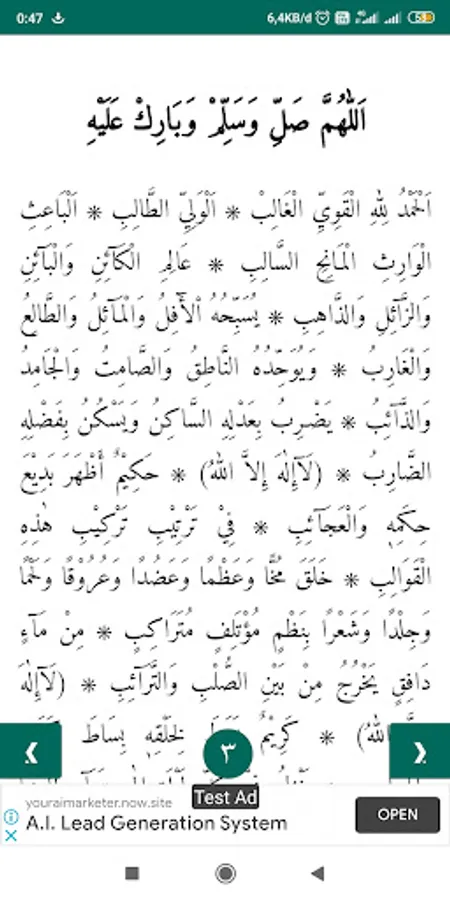 0:47
6,4KB/d
4G
اَللّٰهُمَّ صَلِّ وَسَلِّمْ وَبَارِكْ عَلَيْهِ
اَلْحَمْدُ لِلهِ الْقَوِيِّ الْغَالِبْ * اَلْوَلِيِّ الطَّالِبِ * اَلْبَاعِثِ
الْوَارِثِ الْمَانِحِ السَّالِبِ * عَالِمِ الْكَآئِنِ وَالْبَآئِنِ
وَالزَّآئِلِ وَالذَّاهِبِ * يُسَبِّحُهُ اْلآفِلُ وَالْمَآئِلُ وَالطَّالِعُ
وَالْغَارِبُ * وَيُوَحِّدُهُ النَّاطِقُ وَالصَّامِتُ وَالْجَامِدُ
وَالذَّآئِبُ * يَضْرِبُ بِعَدْلِهِ السَّاكِنُ وَيَسْكُنُ بِفَضْلِهِ
الضَّارِبُ * (لَآإِلٰهَ إِلاَّ اللهُ) * حَكِيْمٌ أَظْهَرَ بَدِيْعَ
حِكَمِهٖ وَالْعَجَآئِبِ * فِيْ تَرْتِيْبِ تَرْكِيْبِ هٰذِهِ
الْقَوَالِبِ * خَلَقَ مُخًّا وَعَظْمًا وَعَضُدًا وَعُرُوْقًا وَلَحْمًا
وَجِلْدًا وَشَعْرًا بِنَظْمٍ مُؤْتَلِفٍ مُتَرَاكِبٍ * مِنْ مَآءٍ
دَافِقٍ يَخْرُجُ مِنْ بَيْنِ الصُّلْبِ وَالتَّرَآئِبِ * (لَآإِلٰهَ
اللهُ) * كَرِيْمٌ لِخَلْقِهٖ بِسَاطَ
٣
Test Ad
youraimarketer.now.site
A.I. Lead Generation System
OPEN